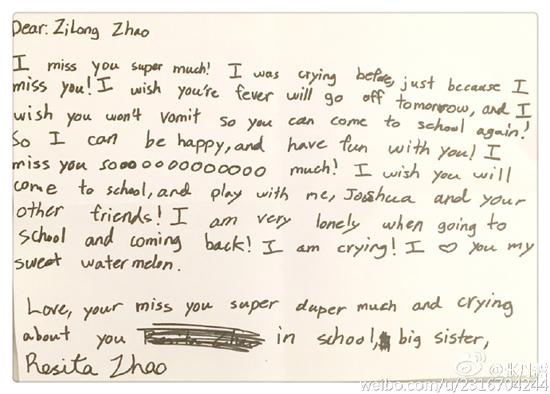 Dear: ZiLong Zhao
I miss you super much! I was crying before, just because I
miss you! I wish you're fever will go off tomorrow, and I
wish you won't vomit so you can come to school again!
So I can be happy, and have fun with you! I
miss you soooooooooooooo much! I wish you will
come to school, and play with me, Joshua and your
other friends! I am very lonely when going to
school and coming back! I am crying! I ♡ you my
sweet watermelon.
Love, your miss you super duper much and crying
about you in school, big sister,
Rosita Zhao
weibo.com/u/2316704244